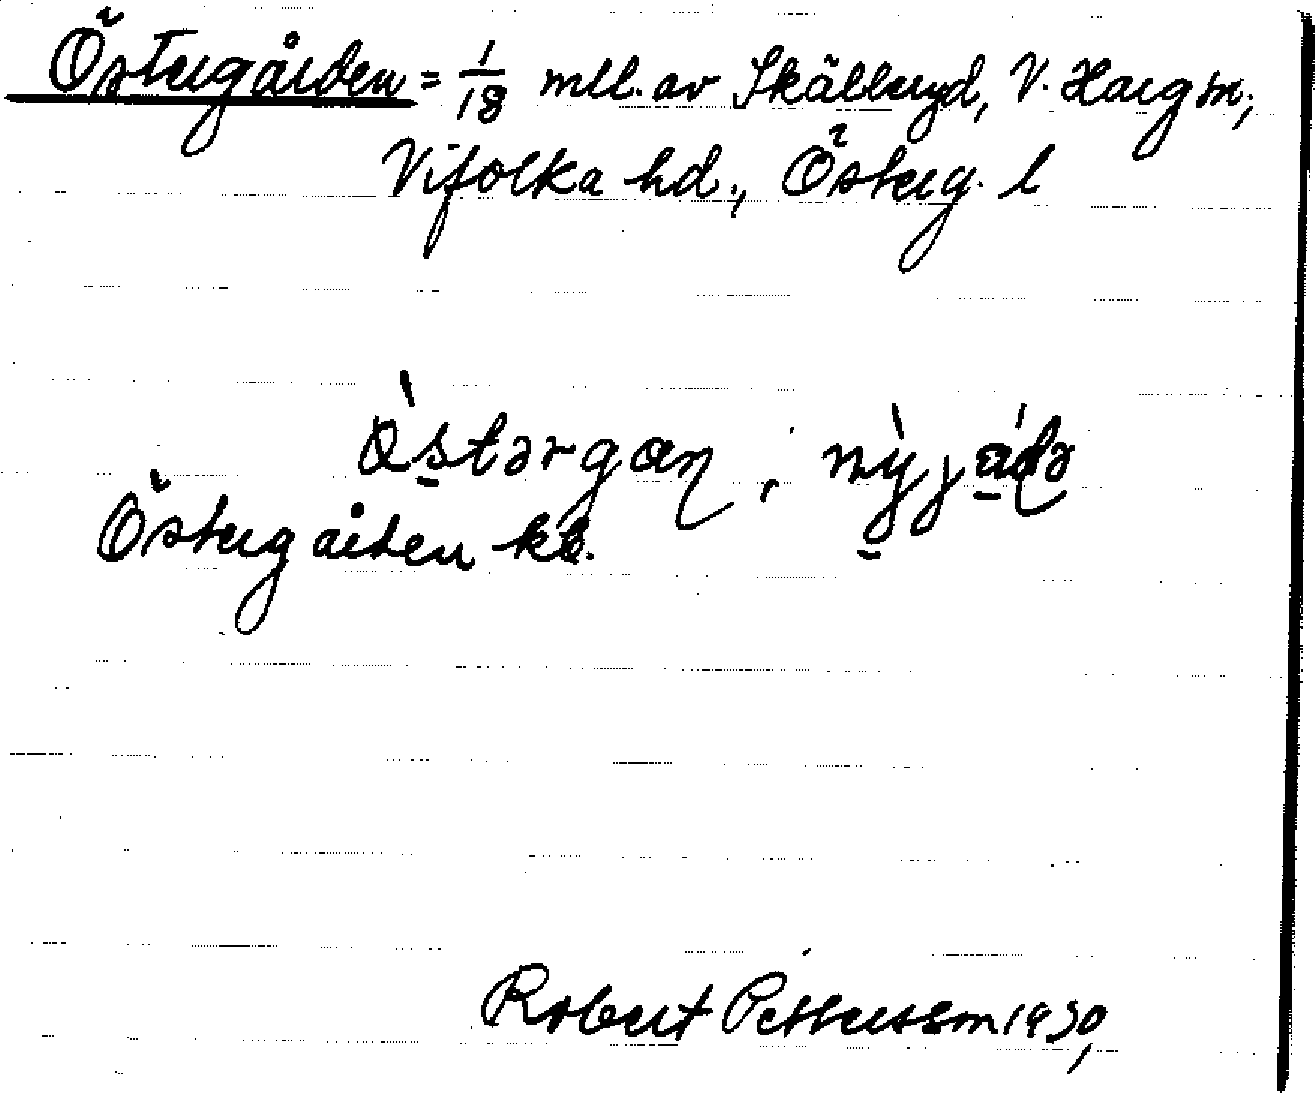 Östergården = 1/18 mtl. av Skälleryd, V. Harg sn,
Vifolka hd., Österg. l
Östergården kb.
Robert Pettersson 1930,